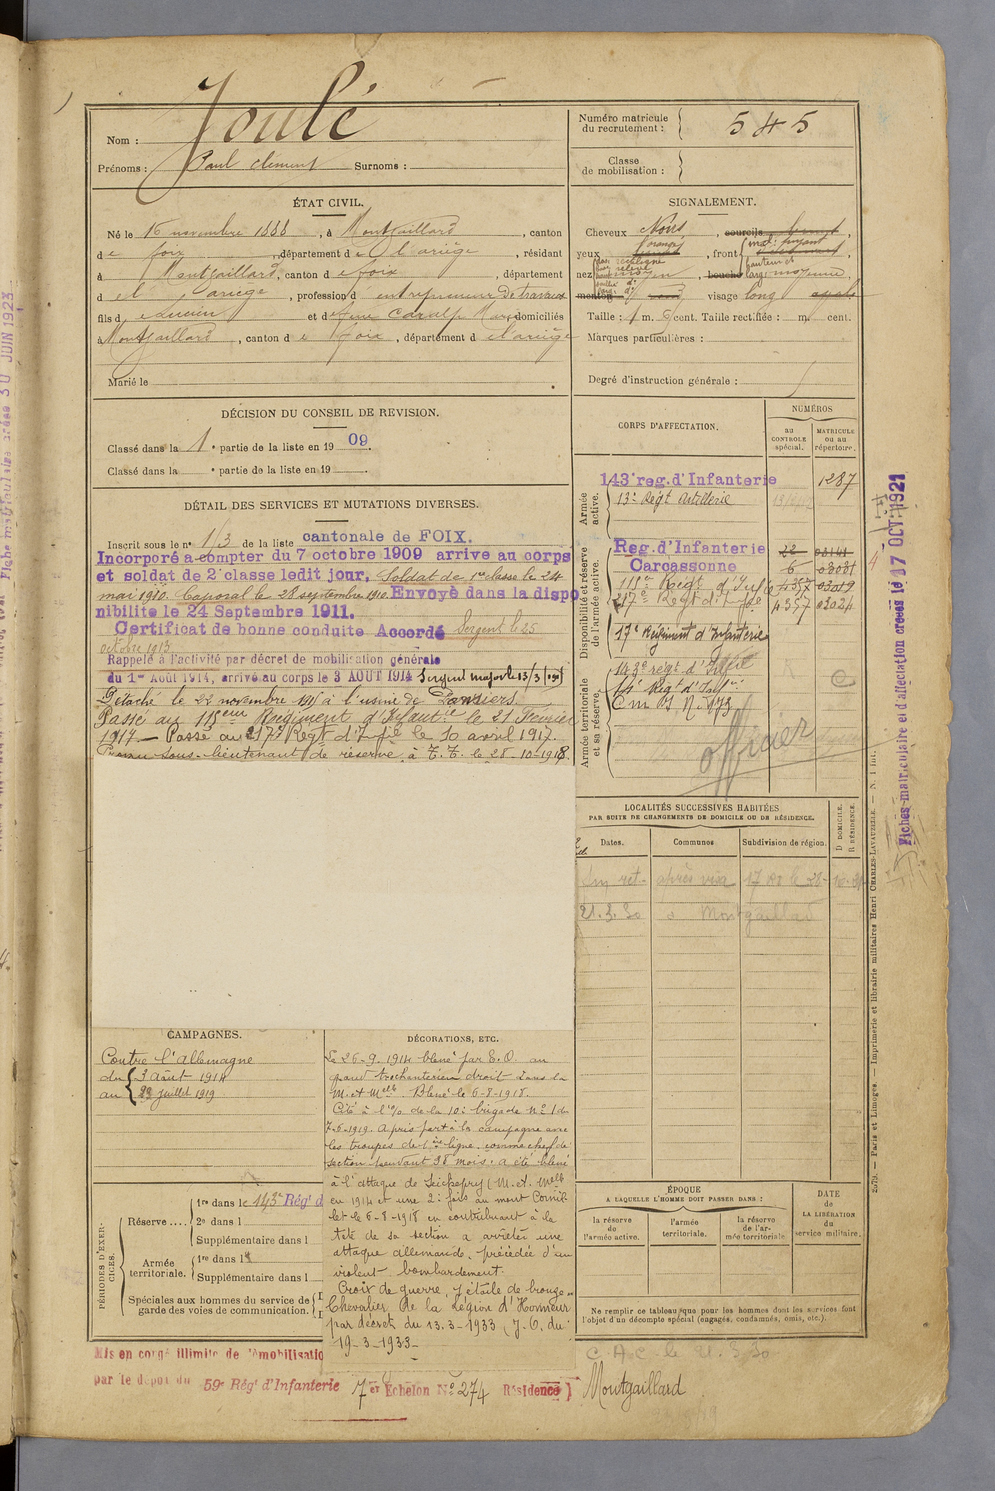 Nom : Joulé
Prénoms : Paul Clément Surnoms :
Numéro matricule du recrutement : 545
Classe de mobilisation :
ÉTAT CIVIL.
Né le 16 novembre 1888, à Montgaillard, canton
de foix, département de l'ariège, résidant
à Montgaillard, canton de foix, département
d el ariège, profession d entrepreneur de travaux
fils d et d Caralp domiciliés
à Montgaillard, canton d e foix, département d el ariège
Marié le
SIGNALEMENT.
Cheveux Noirs, sourcils
yeux , front
nez moyen, bouche moyenne,
menton rond visage long ovale
Taille : 1 m. cent. Taille rectifiée : m. cent.
Marques particulières :
Degré d'instruction générale :
DÉCISION DU CONSEIL DE REVISION.
Classé dans la 1e partie de la liste en 1909.
Classé dans la e partie de la liste en 19
DÉTAIL DES SERVICES ET MUTATIONS DIVERSES.
Inscrit sous le n° 13 de la liste cantonale de FOIX.
Incorporé à compter du 7 octobre 1909 arrive au corps
et soldat de 2e classe ledit jour. Soldat de 1re classe le 24
mai 1910. Caporal le 28 septembre 1910. Envoyé dans la dispo
nibilité le 24 Septembre 1911.
Certificat de bonne conduite Accordé Sergent le 25
octobre 1913
Rappelé à l'activité par décret de mobilisation générale
du 1er Août 1914, arrivé au corps le 3 AOUT 1914 Sergent major le 13/3/1915
Détaché le 22 novembre 1915 à l'usine de Pamiers
Passé au 115eme Régiment d'Infautie le 21 Février
1917. — Passé au 217e Régt d'Infie le 10 avril 1917.
Promu sous-lieutenant de réserve à T.T. le 28-10-1918.
CORPS D'AFFECTATION.
NUMÉROS
au CONTROLE spécial.
MATRICULE ou au répertoire.
Armée active.
143e reg. d'Infanterie 1287
13e Régt Artillerie
Disponibilité et réserve de l'armée active.
Reg. d'Infanterie 22
Carcassonne 6
115e Régt d'Infie 4357 03019
217e Régt d'Infie 4357 03024
17e Régiment d'Infanterie
Armée territoriale et sa réserve.
143e régt d'Infie
14e Régt d'Infie
officier
LOCALITÉS SUCCESSIVES HABITÉES
PAR SUITE DE CHANGEMENTS DE DOMICILE OU DE RÉSIDENCE.
Dates.
Communes
Subdivision de région.
D DOMICILE. R RÉSIDENCE.
21.3.30 Montgaillard
CAMPAGNES.
Contre l'Allemagne
du 3 août 1914
au 23 juillet 1919
DÉCORATIONS, ETC.
Le 26-9-1914 blessé par E.O. au
grand trochanterien droit dans la
M. et Melle Blessé le 6-8-1918.
Cité à l'% de la 10e brigade n° 1 du
7-6-1919. A pris part à la campagne avec
les troupes de 1ere ligne, comme chef de
section pendant 38 mois. a été blessé
à l'attaque de Seicheprey (M. et Melle
en 1914 et une 2e fois au mont
let le 6-8-1918 en contribuant à la
tête de sa section a arrêter une
attaque allemande, précédée d'un
violent bombardement.
Croix de guerre, 1 étoile de bronze.
Chevalier de la Légion d'Honneur
par décret du 13-3-1933, J.O. du
19-3-1933
PÉRIODES D'EXERCICES.
Réserve....
1re dans le 143e Rég t d
2e dans l
Supplémentaire dans l
Armée territoriale.
1re dans l
Supplémentaire dans l
Spéciales aux hommes du service de garde des voies de communication.
ÉPOQUE
A LAQUELLE L'HOMME DOIT PASSER DANS :
la réserve de l'armée active.
l'armée territoriale.
la réserve de l'armée territoriale.
DATE de LA LIBÉRATION du service militaire.
Ne remplir ce tableau que pour les hommes dont les services font
l'objet d'un décompte spécial (engagés, condamnés, omis, etc.).
Mis en congé illimité de démobilisatio
par le dépôt du 59e Régt d'Infanterie 7er Echelon N° 274 Résidence ) Montgaillard
Fiches matriculaire et d'affectation créées le 17 OCT. 1921
2579. — Paris et Limoges. — Imprimerie et librairie militaires Henri CHARLES-LAVAUZELLE. —
Fiche matriculaire créée 30 JUIN 1923